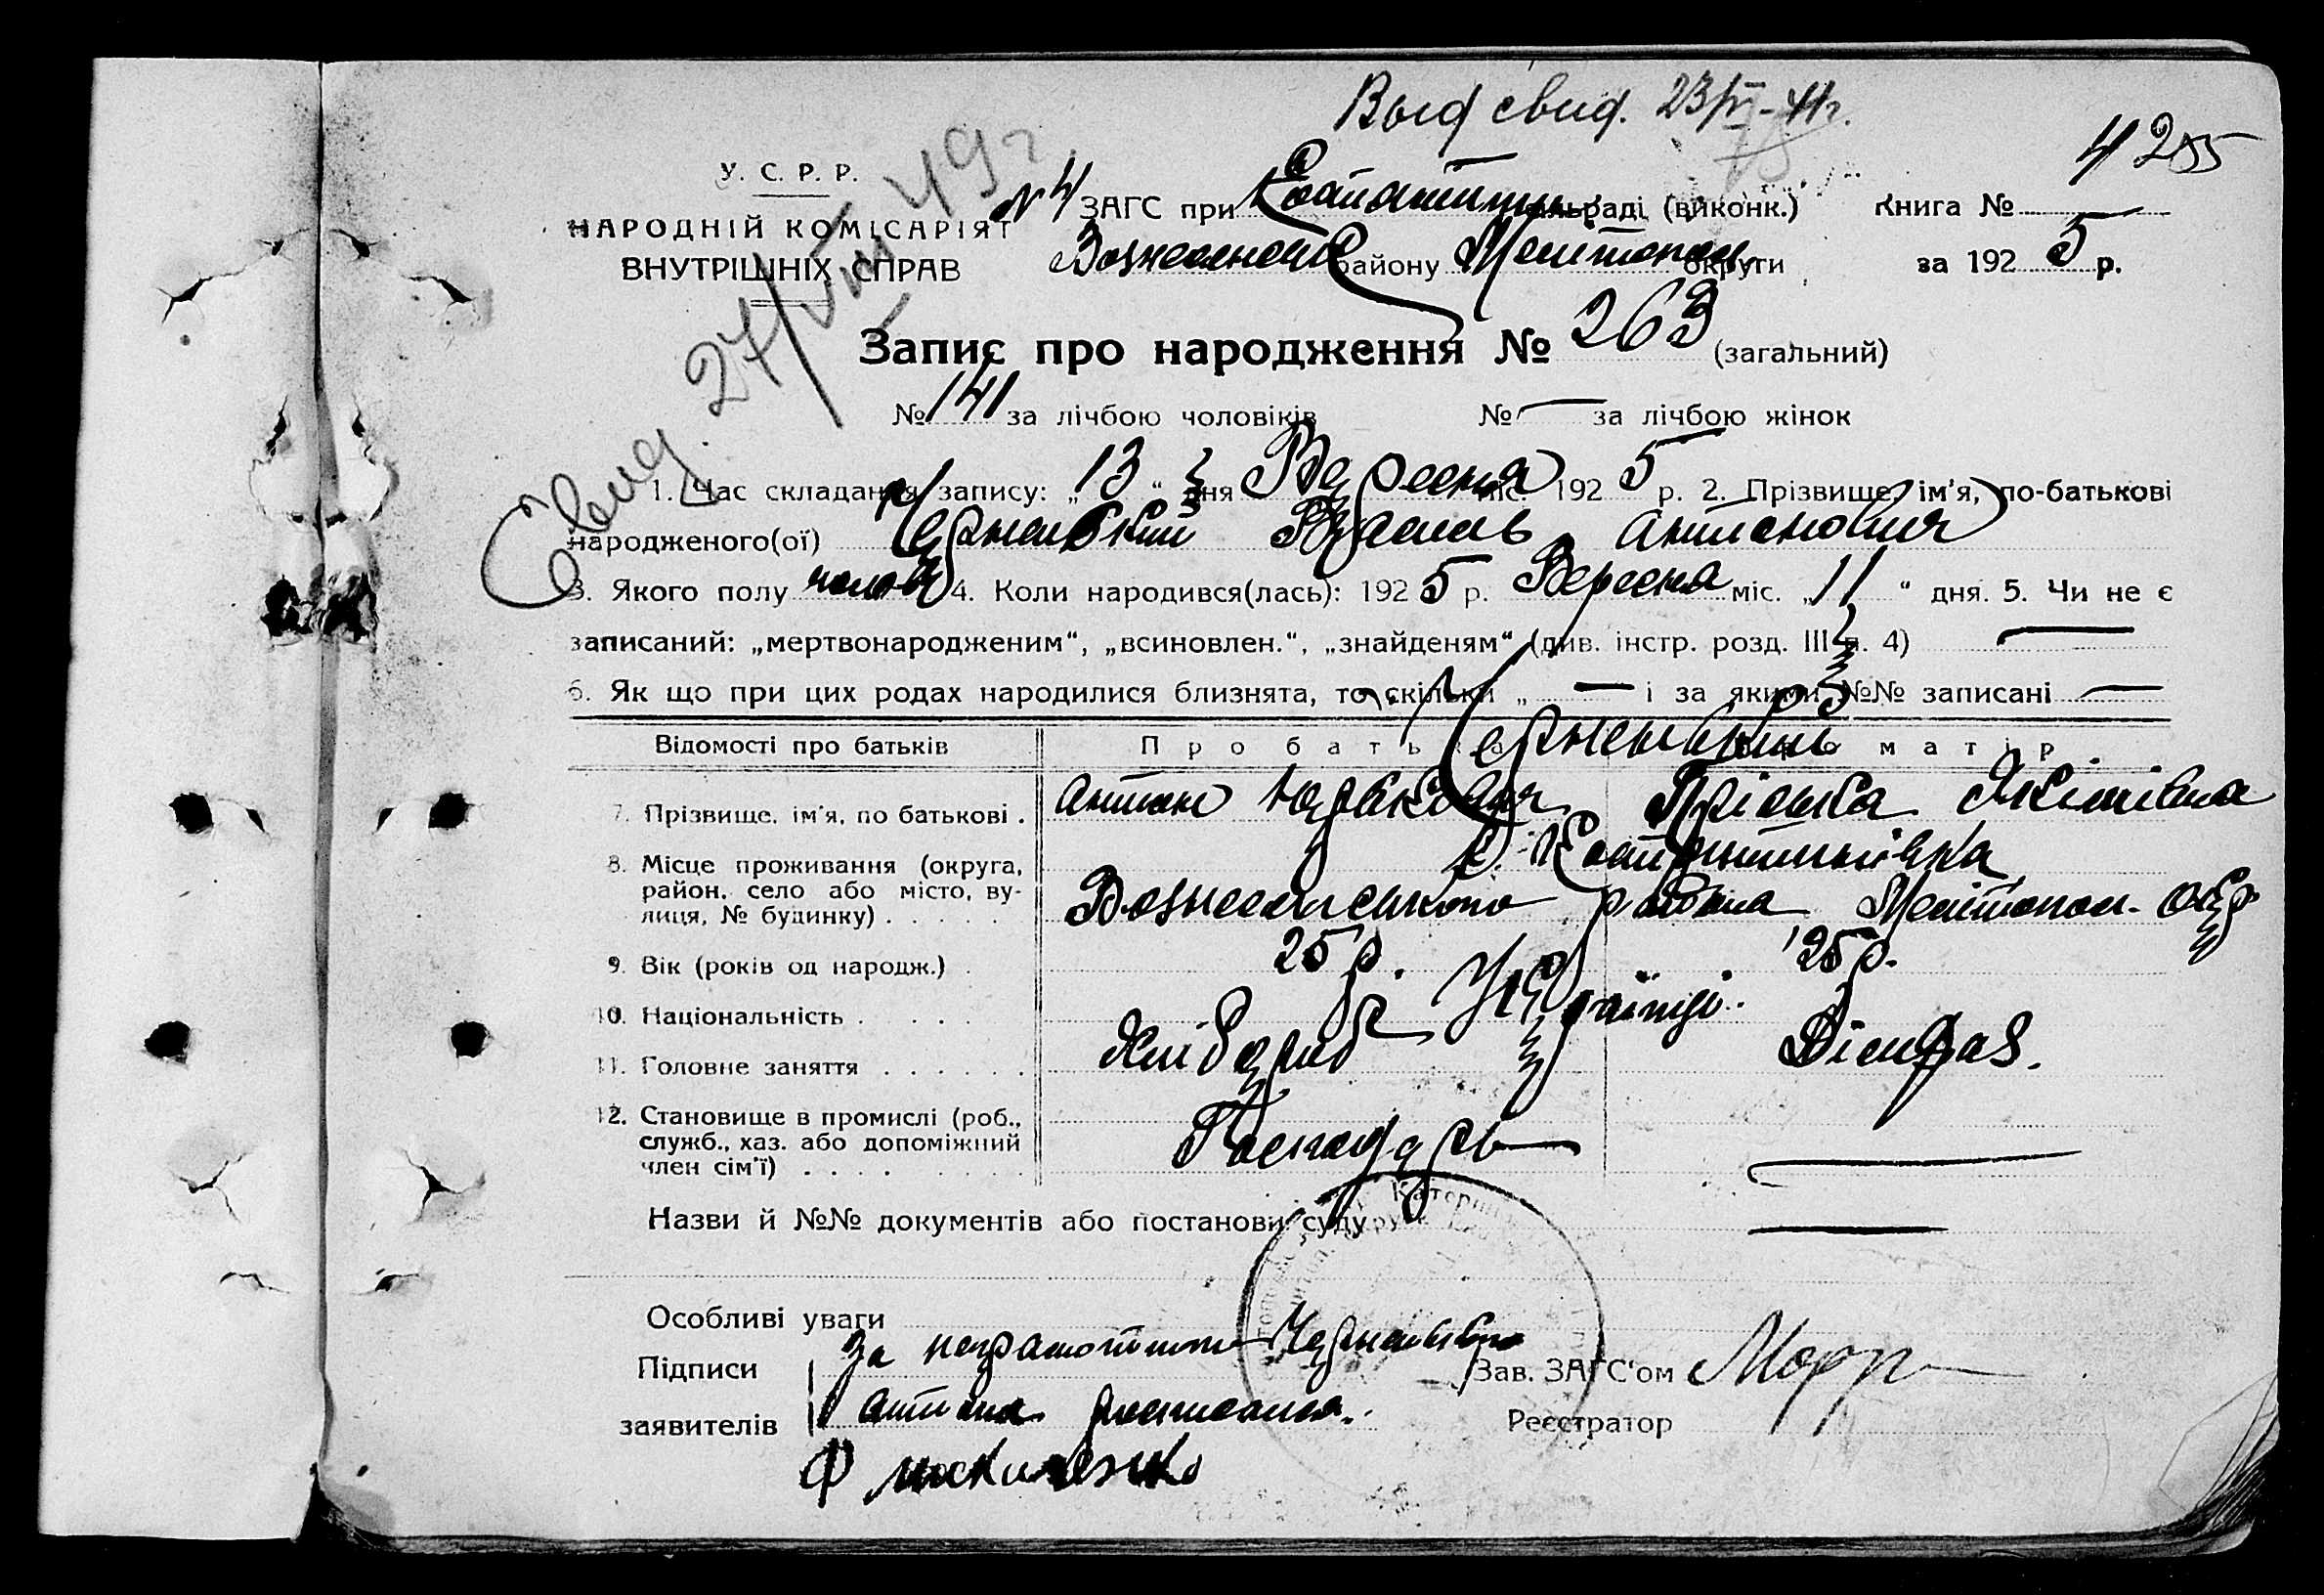 Выд свид. 23/V-41г.
4 255
У. С. Р. Р.
НАРОДНІЙ КОМІСАРІЯТ
ВНУТРІШНІХ СПРАВ
№ 4 ЗАГС при сільраді (виконк.) Книга №
району Мелітопол. округи за 1925 р.
Свид. 27/VIII 49 г.
Запис про народження № 263 (загальний)
№ 141 за лічбою чоловіків № — за лічбою жінок
1. Час складання запису: „13“ дня Вересня міс. 1925 р. 2. Прізвище, ім'я, по-батькові
народженого(ої) Антонович
3. Якого полу чолов 4. Коли народився(лась): 1925 р. Вересня міс. „11“ дня. 5. Чи не є
записаний: „мертвонародженим“, „всиновлен.“, „знайденям“ (див. інстр. розд. III п. 4) —
6. Як що при цих родах народилися близнята, то скільки „ — “ і за якими №№ записані —
Відомості про батьків Про батька Про матір
7. Прізвище, ім'я, по батькові . Антон Пріська Якимівна
8. Місце проживання (округа,
район, село або місто, ву-
лиця, № будинку) . . . . . Вознесенського района Мелітопол. окр
9. Вік (років од народж.) . 25 р. 25 р.
10. Національність . . . . Українці.
11. Головне заняття . . . . . . Хлібороб
12. Становище в промислі (роб.,
служб., хаз. або допоміжний
член сім'ї) . . . . . . . Господарь —
Назви й №№ документів або постанови суду —
Особливі уваги
Підписи За неграмотного Зав. ЗАГС'ом
заявителів Антона росписался. Реєстратор